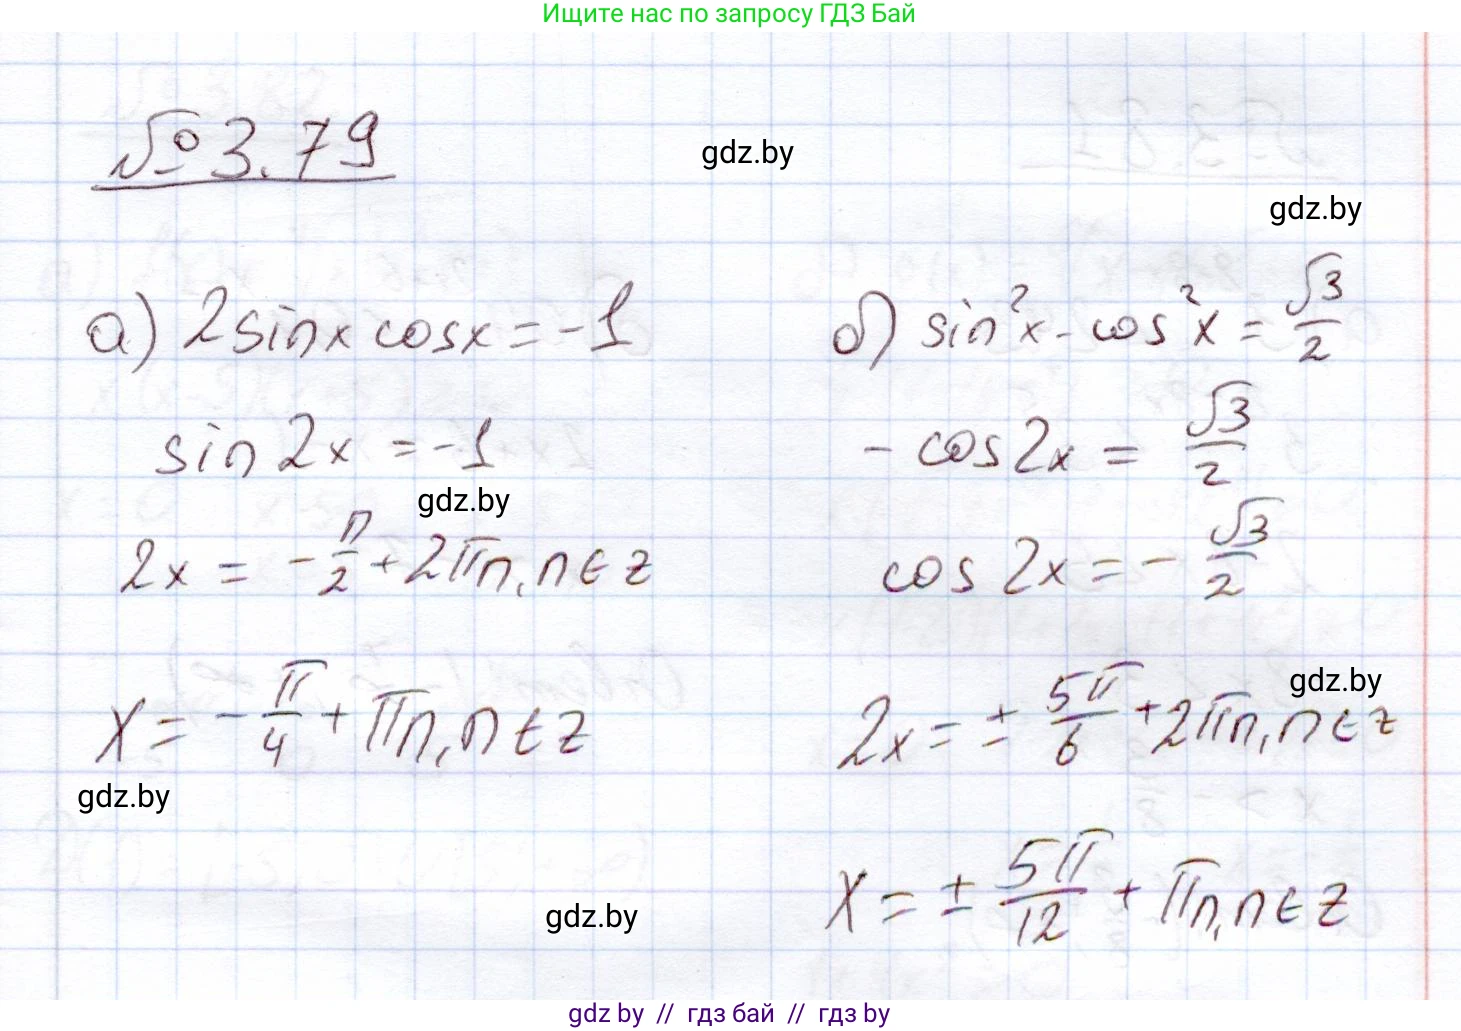 Ищите нас по запросу ГДЗ Бай
№3.79
gdz.by
gdz.by
а) 2sinx cosx = -1
sin 2x = -1
gdz.by
2x = -π/2 + 2πn, n∈z
x = -π/4 + πn, n∈z
gdz.by
gdz.by
б) sin²x - cos²x = √3/2
- cos 2x = √3/2
cos 2x = - √3/2
gdz.by
2x = ± 5π/6 + 2πn, n∈z
x = ± 5π/12 + πn, n∈z
gdz by // гдз бай // гдз by